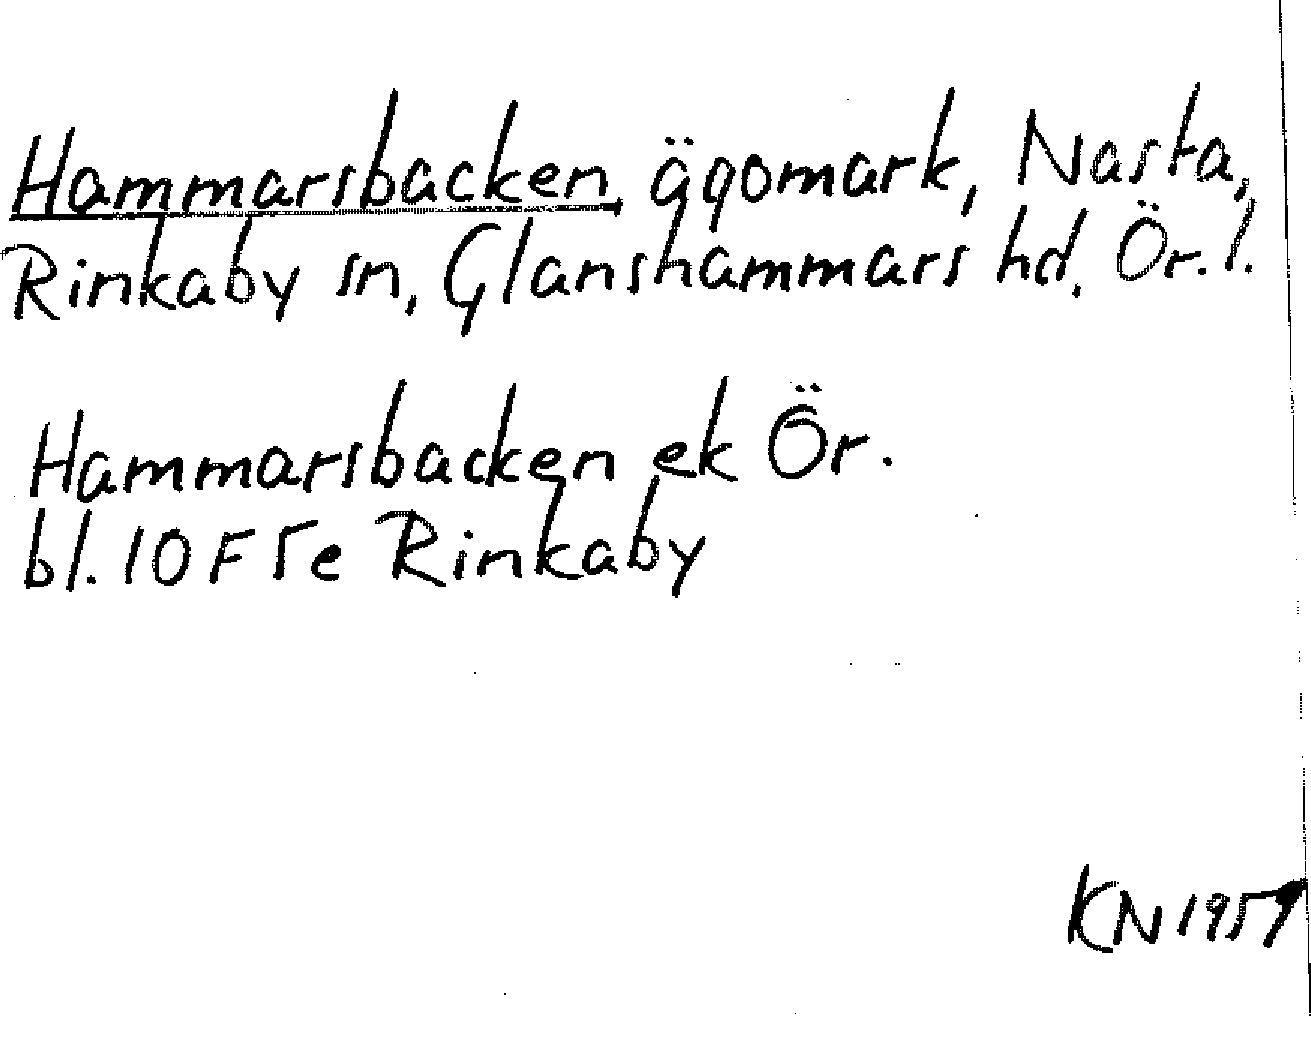 Hammarsbacken, ägomark, Nasta,
Rinkaby sn, Glanshammars hd, Ör. l.
Hammarsbacken ek Ör.
bl. 10F5e Rinkaby
KN 1957